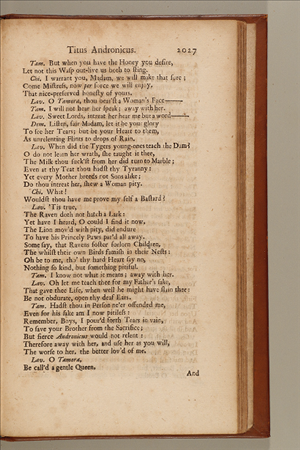 Titus Andronicus. 2027
Tam. But when you have the Honey you desire,
Let not this Wasp out-live us both to sting.
Chi. I warrant you, Madam, we will make that sure;
Come Mistress, now perforce we will enjoy,
That nice-preserved honesty of yours.
Lav. O Tamora, thou bear'st a Woman's Face——
Tam. I will not hear her speak; away with her.
Lav. Sweet Lords, intreat her hear me but a word——
Dem. Listen, fair Madam, let it be your glory
To see her Tears; but be your Heart to them,
As unrelenting Flints to drops of Rain.
Lav. When did the Tygers young-ones teach the Dam?
O do not learn her wrath, she taught it thee,
The Milk thou suck'st from her did turn to Marble;
Even at thy Teat thou hadst thy Tyranny:
Yet every Mother breeds not Sons alike;
Do thou intreat her, shew a Woman pity.
Chi. What!
Wouldst thou have me prove my self a Bastard?
Lav. 'Tis true,
The Raven doth not hatch a Lark:
Yet have I heard, O could I find it now,
The Lion mov'd with pity, did endure
To have his Princely Paws par'd all away.
Some say, that Ravens foster forlorn Children,
The whilst their own Birds famish in their Nests:
Oh be to me, tho' thy hard Heart say no,
Nothing so kind, but something pitiful.
Tam. I know not what it means; away with her.
Lav. Oh let me teach thee for my Father's sake,
That gave thee Life, when well he might have slain thee:
Be not obdurate, open thy deaf Ears.
Tam. Hadst thou in Person ne'er offended me,
Even for his sake am I now pitiless:
Remember, Boys, I pour'd forth Tears in vain,
To save your Brother from the Sacrifice;
But fierce Andronicus would not relent:
Therefore away with her, and use her as you will,
The worse to her, the better lov'd of me.
Lav. O Tamora,
Be call'd a gentle Queen,
And